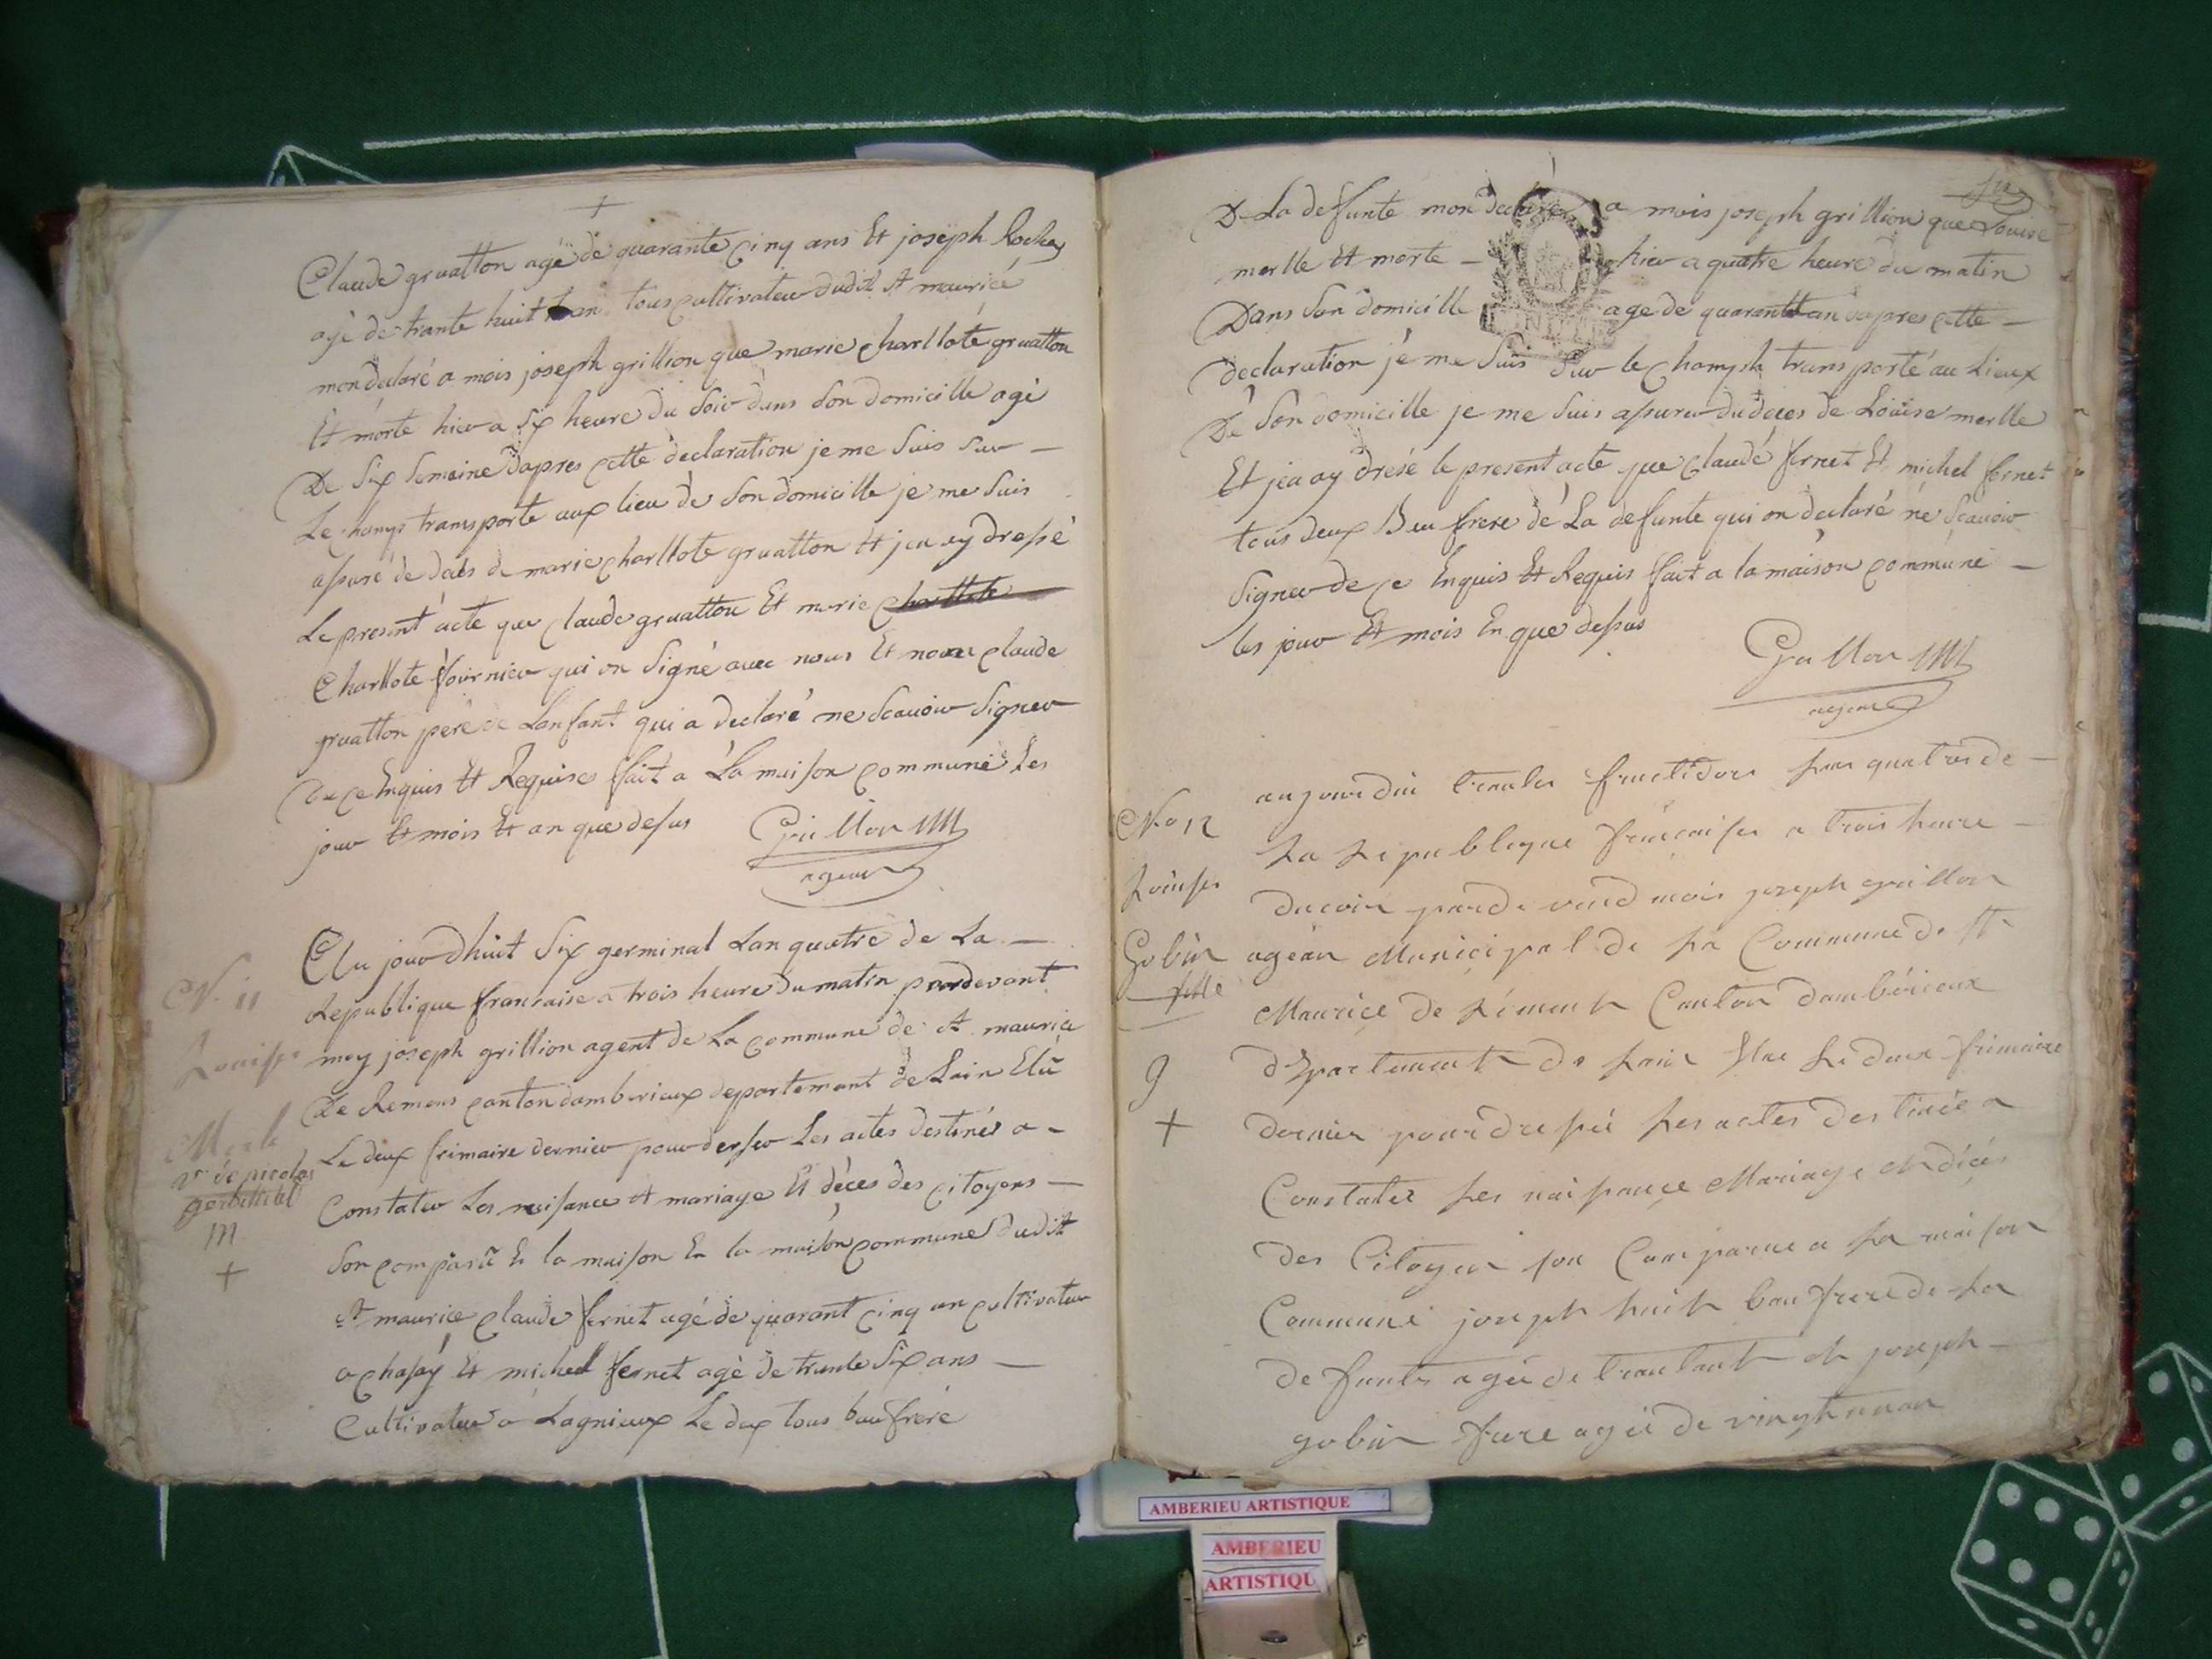 Claude gruatton agé de quarante cinq ans Et joseph Rochey
agé de trante huit an tous cultivateur dudit st mauricé
mon declaré a mois joseph grillion que marie charllote gruatton
Et morte hier a six heure du Soir dans Son domicille agé
De Six Semaine dapres cette declaration je me Suis Sur —
Le champ transporté aux lieu de Son domicille je me Suis
assuré de dcés de marie charllote gruatton Et jen ay dressé
Le present acte que claude gruatton Et marie charllote
Charllote fournier qui on Signé avec nous Et non claude
gruatton pere de Lanfant qui a declaré ne Scavoir Signer
De ce Enquis Et Requises fait a La maison commune Les
jour Et mois Et an que desus Grillon
agean
N. 11
Louise
Merle
ve de nicolas
M
+
Au jour dhuit Six germinal Lan quatre de La —
Republique francaise a trois heure du matin pardevant
moy joseph grillion agent de La commune de st maurice
De Remens canton damberieux departemant de Lain Elu
Le deux frimaire dernier pour derser Les actes destinés a -
Constater Les naisance et mariage Et décés des citoyens —
Son comparû En la maison En la maison commune dudit
st maurice claude fernet agé de quarant cinq an cultivateur
a chasay Et michel fernet agé de trante Six ans —
Cultivateur a Lagnieux Le dex tous bau frere
De La defunte mon declaré a mois joseph grillion que Louise
merlle Et morte — hier a quatre heure du matin
Dans Son domicille age de quarantte an dapres cette —
declaration je me Suis Sur le champ transporté au Lieux
De Son domicille je me Suis assuru du deces de Loüise merlle
Et jen ay dresé le present acte que claude fernet Et michel fernet
tous deux Beu frere de La defunte qui on declaré né Scavoir
Signer de ce Enquis Et Requis fait a la maison commune —
les jour Et mois En que dessus
Grillon
agean
No 12
Louise
Gobin
fille
9
+
aujourdui trante fructidor lan quatre de —
La Republique francaise a trois heure —
du coir parde vend mois joseph grillon
agean Municipal de La Commune de St
Maurice de Rément Canton dambérieux
département de Lain Elue Le deux frimaire
dernier pour dressé Les actes destinée a
Constater Les naissance Mariage et décés
des Citoyen son Comparue a La maison
Commune joseph huit bau frere de La
defunte agée de trantant et joseph —
gobin frere agée de vingt un an
AMBERIEU ARTISTIQUE
AMBERIEU
ARTISTIQU